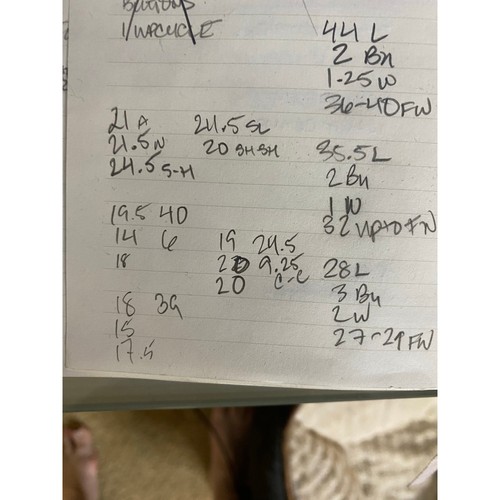 BUTTONS
1/UPCYCLE
21 A 24.5 SL
21.5 N 20 SH SH
24.5 S-H
19.5 40
14 6
18
18 39
15
17.5
19 24.5
20 9.25
20 C-C
44 L
2 Bn
1-25 W
36-40 FW
35.5 L
2 Bn
1 W
32 UPTO FW
28 L
3 Bn
2 W
27-29 FW